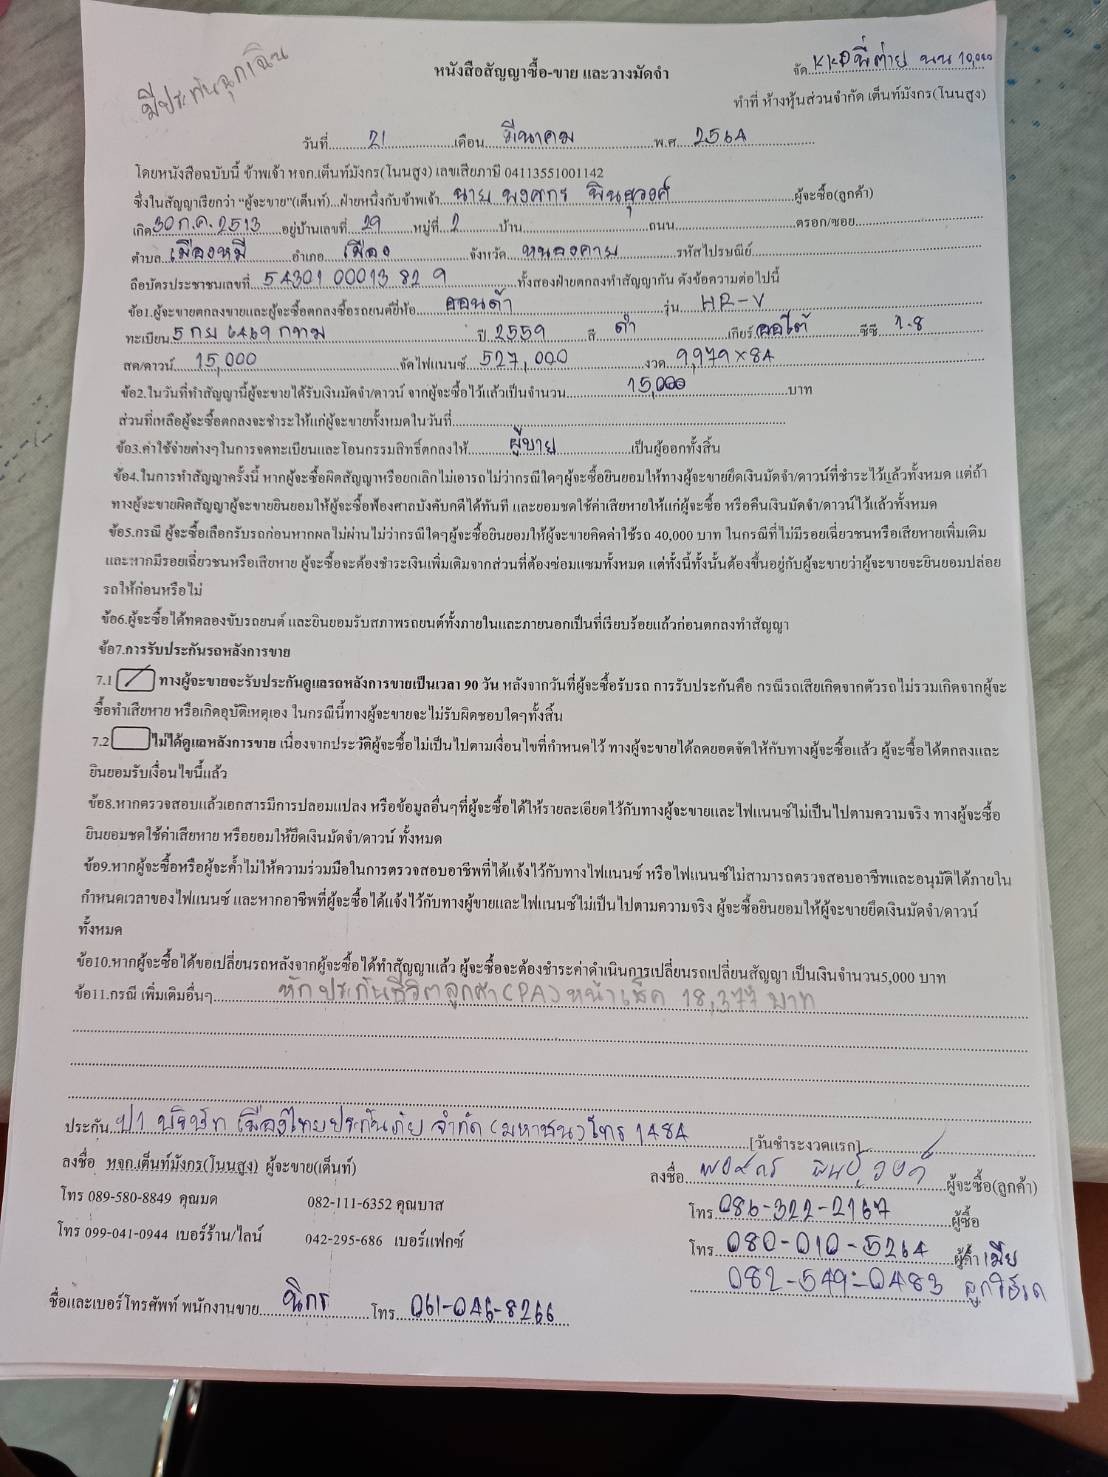 มีประกันฉุกเฉิน
หนังสือสัญญาซื้อ-ขาย และวางมัดจำ
จัด KKP พี่ต่าย นน 10,000
ทำที่ ห้างหุ้นส่วนจำกัด เต็นท์มังกร(โนนสูง)
วันที่ 21 เดือน มีนาคม พ.ศ. 2564
โดยหนังสือฉบับนี้ ข้าพเจ้า หจก.เต็นท์มังกร(โนนสูง) เลขเสียภาษี 04113551001142
ซึ่งในสัญญาเรียกว่า "ผู้จะขาย"(เต็นท์)...ฝ่ายหนึ่งกับข้าพเจ้า นาย พงศกร พินธุวงศ์ ผู้จะซื้อ(ลูกค้า)
เกิด 30 ก.ค. 2513 อยู่บ้านเลขที่ 29 หมู่ที่ 2 บ้าน ถนน ตรอก/ซอย
ตำบล เมืองหมี อำเภอ เมือง จังหวัด หนองคาย รหัสไปรษณีย์
ถือบัตรประชาชนเลขที่ 54301 00013 82 9 ทั้งสองฝ่ายตกลงทำสัญญากัน ดังข้อความต่อไปนี้
ข้อ1.ผู้จะขายตกลงขายและผู้จะซื้อตกลงซื้อรถยนต์ยี่ห้อ ฮอนด้า รุ่น HR-V
ทะเบียน 5 กย 6469 กทม ปี 2559 สี ดำ เกียร์ ออโต้ ซีซี 1.8
สด/ดาวน์ 15,000 จัดไฟแนนซ์ 527,000 งวด 9,979 x 84
ข้อ2.ในวันที่ทำสัญญานี้ผู้จะขายได้รับเงินมัดจำ/ดาวน์ จากผู้จะซื้อไว้แล้วเป็นจำนวน 15,000 บาท
ส่วนที่เหลือผู้จะซื้อตกลงจะชำระให้แก่ผู้จะขายทั้งหมดในวันที่
ข้อ3.ค่าใช้จ่ายต่างๆในการจดทะเบียนและโอนกรรมสิทธิ์ตกลงให้ ผู้ขาย เป็นผู้ออกทั้งสิ้น
ข้อ4.ในการทำสัญญาครั้งนี้ หากผู้จะซื้อผิดสัญญาหรือยกเลิกไม่เอารถไม่ว่ากรณีใดๆผู้จะซื้อยินยอมให้ทางผู้จะขายยึดเงินมัดจำ/ดาวน์ที่ชำระไว้แล้วทั้งหมด แต่ถ้า
ทางผู้จะขายผิดสัญญาผู้จะขายยินยอมให้ผู้จะซื้อฟ้องศาลบังคับคดีได้ทันที และยอมชดใช้ค่าเสียหายให้แก่ผู้จะซื้อ หรือคืนเงินมัดจำ/ดาวน์ไว้แล้วทั้งหมด
ข้อ5.กรณี ผู้จะซื้อเลือกรับรถก่อนหากผลไม่ผ่านไม่ว่ากรณีใดๆผู้จะซื้อยินยอมให้ผู้จะขายคิดค่าใช้รถ 40,000 บาท ในกรณีที่ไม่มีรอยเฉี่ยวชนหรือเสียหายเพิ่มเติม
และหากมีรอยเฉี่ยวชนหรือเสียหาย ผู้จะซื้อจะต้องชำระเงินเพิ่มเติมจากส่วนที่ต้องซ่อมแซมทั้งหมด แต่ทั้งนี้ทั้งนั้นต้องขึ้นอยู่กับผู้จะขายว่าผู้จะขายจะยินยอมปล่อย
รถให้ก่อนหรือไม่
ข้อ6.ผู้จะซื้อได้ทดลองขับรถยนต์ และยินยอมรับสภาพรถยนต์ทั้งภายในและภายนอกเป็นที่เรียบร้อยแล้วก่อนตกลงทำสัญญา
ข้อ7.การรับประกันรถหลังการขาย
7.1 ทางผู้จะขายจะรับประกันดูแลรถหลังการขายเป็นเวลา 90 วัน หลังจากวันที่ผู้จะซื้อรับรถ การรับประกันคือ กรณีรถเสียเกิดจากตัวรถ ไม่รวมเกิดจากผู้จะ
ซื้อทำเสียหาย หรือเกิดอุบัติเหตุเอง ในกรณีนี้ทางผู้จะขายจะไม่รับผิดชอบใดๆทั้งสิ้น
7.2 ไม่ได้ดูแลหลังการขาย เนื่องจากประวัติผู้จะซื้อไม่เป็นไปตามเงื่อนไขที่กำหนดไว้ ทางผู้จะขายได้ลดยอดจัดให้กับทางผู้จะซื้อแล้ว ผู้จะซื้อได้ตกลงและ
ยินยอมรับเงื่อนไขนี้แล้ว
ข้อ8.หากตรวจสอบแล้วเอกสารมีการปลอมแปลง หรือข้อมูลอื่นๆที่ผู้จะซื้อได้ให้รายละเอียดไว้กับทางผู้จะขายและไฟแนนซ์ไม่เป็นไปตามความจริง ทางผู้จะซื้อ
ยินยอมชดใช้ค่าเสียหาย หรือยอมให้ยึดเงินมัดจำ/ดาวน์ ทั้งหมด
ข้อ9.หากผู้จะซื้อหรือผู้จะค้ำไม่ให้ความร่วมมือในการตรวจสอบอาชีพที่ได้แจ้งไว้กับทางไฟแนนซ์ หรือไฟแนนซ์ไม่สามารถตรวจสอบอาชีพและอนุมัติได้ภายใน
กำหนดเวลาของไฟแนนซ์ และหากอาชีพที่ผู้จะซื้อได้แจ้งไว้กับทางผู้ขายและไฟแนนซ์ไม่เป็นไปตามความจริง ผู้จะซื้อยินยอมให้ผู้จะขายยึดเงินมัดจำ/ดาวน์
ทั้งหมด
ข้อ10.หากผู้จะซื้อได้ขอเปลี่ยนรถหลังจากผู้จะซื้อได้ทำสัญญาแล้ว ผู้จะซื้อจะต้องชำระค่าดำเนินการเปลี่ยนรถเปลี่ยนสัญญา เป็นเงินจำนวน5,000 บาท
ข้อ11.กรณี เพิ่มเติมอื่นๆ หักประกันชีวิตลูกค้า (PA) หน้าเช็ค 18,377 บาท
ประกัน ป1 บริษัท เมืองไทยประกันภัย จำกัด (มหาชน) โทร 1484
[วันชำระงวดแรก]
ลงชื่อ หจก.เต็นท์มังกร(โนนสูง) ผู้จะขาย(เต็นท์)
ลงชื่อ พงศกร พินธุวงศ์ ผู้จะซื้อ(ลูกค้า)
โทร 089-580-8849 คุณมด 082-111-6352 คุณบาส
โทร 086-322-2167 ผู้ซื้อ
โทร 099-041-0944 เบอร์ร้าน/ไลน์ 042-295-686 เบอร์แฟกซ์
โทร 080-010-5264 ผู้ค้ำ เมีย
082-549-0483 ลูกใช้รถ
ชื่อและเบอร์โทรศัพท์ พนักงานขาย นิกร โทร 061-046-8266